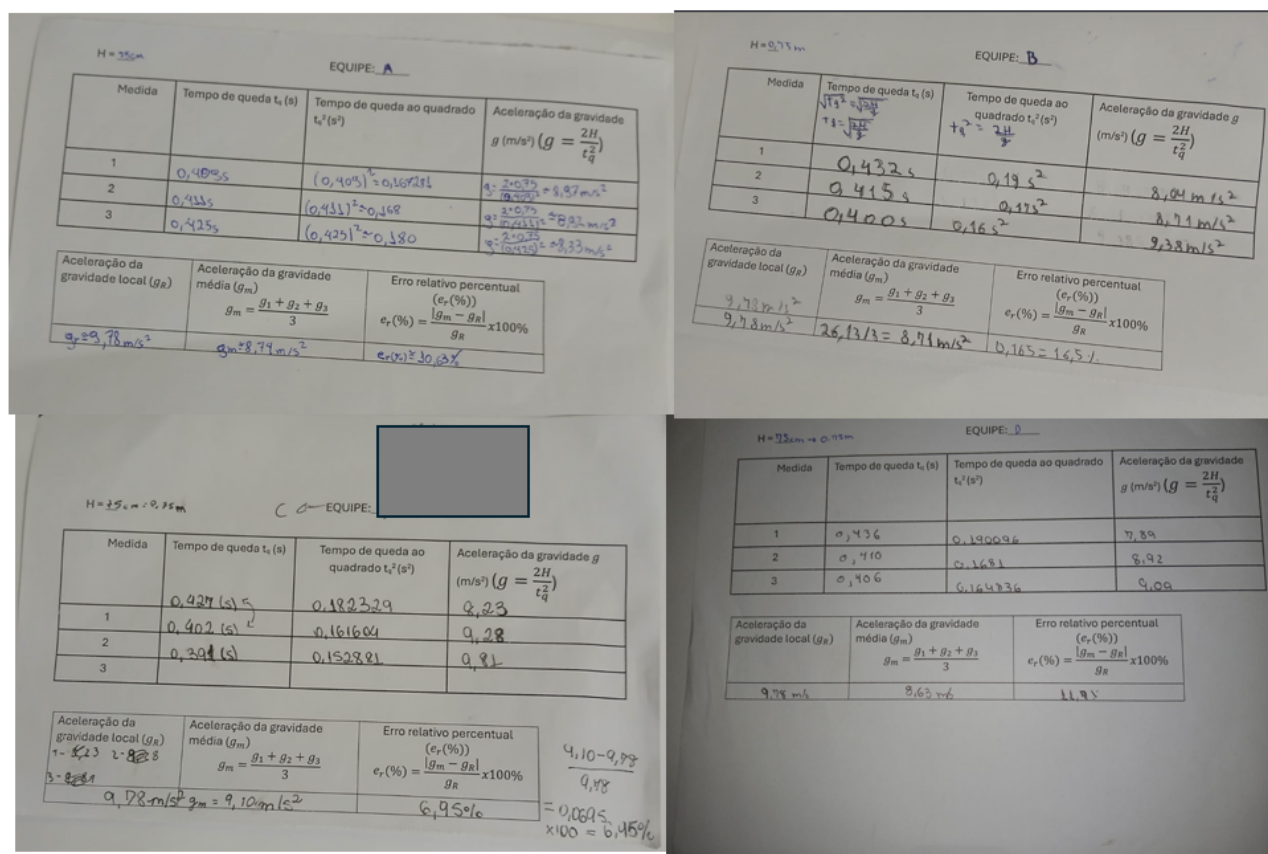 H = 75cm
EQUIPE: A
Medida Tempo de queda tq (s) Tempo de queda ao quadrado tq²(s²) Aceleração da gravidade g (m/s²) (g = 2H/tq²)
1 0,409s (0,409)²=0,167281 g=2*0,75/(0,409)² ≈ 8,97m/s²
2 0,411s (0,411)²≈0,168 g=2*0,75/(0,411)² ≈ 8,92 m/s²
3 0,425s (0,425)²≈0,180 g=2*0,75/(0,425)² ≈ 8,33m/s²
Aceleração da gravidade local (gR) Aceleração da gravidade média (gm) gm = g1 + g2 + g3/3 Erro relativo percentual (er(%)) er(%) = |gm − gR|/gR x100%
gr≈9,78m/s² gm≈8,74m/s² er(%)≈10,63%
H = 0,75m
EQUIPE: B
Medida Tempo de queda tq (s) √tq² = √2H/g tq = √2H/g Tempo de queda ao quadrado tq²(s²) tq² = 2H/g Aceleração da gravidade g (m/s²) (g = 2H/tq²)
1 0,432s 0,19 s² 8,04 m/s²
2 0,415s 0,17s² 8,71m/s²
3 0,400s 0,16 s² 9,38m/s²
Aceleração da gravidade local (gR) Aceleração da gravidade média (gm) gm = g1 + g2 + g3/3 Erro relativo percentual (er(%)) er(%) = |gm − gR|/gR x100%
9,78m/s²
9,78m/s² 26,13/3 = 8,71m/s² 0,165 = 16,5%
H = 75cm = 0,75m
C EQUIPE:
Medida Tempo de queda tq (s) Tempo de queda ao quadrado tq²(s²) Aceleração da gravidade g (m/s²) (g = 2H/tq²)
1 0,427(s) 0,182329 8,23
2 0,402(s) 0,161604 9,28
3 0,391(s) 0,152881 9,81
Aceleração da gravidade local (gR) Aceleração da gravidade média (gm) gm = g1 + g2 + g3/3 Erro relativo percentual (er(%)) er(%) = |gm − gR|/gR x100%
9,78m/s² gm = 9,10m/s² 6,95%
9,10-9,78
9,78
= 0,0695
x100 = 6,95%
H = 75cm → 0.75m
EQUIPE: D
Medida Tempo de queda tq (s) Tempo de queda ao quadrado tq²(s²) Aceleração da gravidade g (m/s²) (g = 2H/tq²)
1 0,436 0.190096 7,89
2 0,410 0.1681 8,92
3 0,406 0,164836 9,09
Aceleração da gravidade local (gR) Aceleração da gravidade média (gm) gm = g1 + g2 + g3/3 Erro relativo percentual (er(%)) er(%) = |gm − gR|/gR x100%
9,78 m/s 8,63 m/s